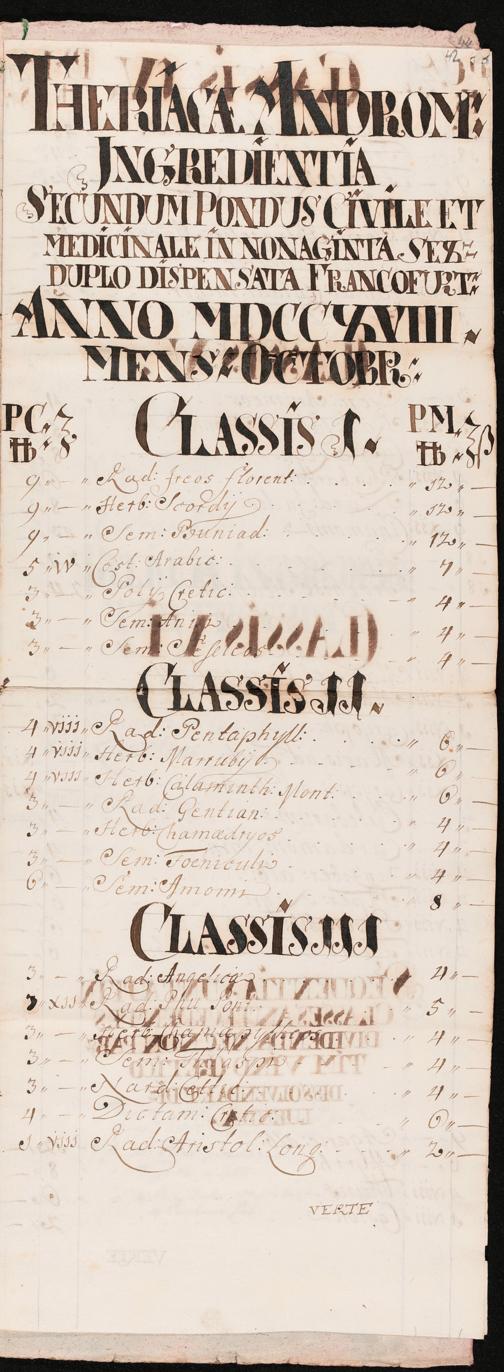 THERIACÆ ANDROM:
INGREDIENTIA
SECUNDUM PONDUS CIVILE ET
MEDICINALE IN NONAGINTA SEX-
DUPLO DISPENSATA FRANCOFURT:
ANNO MDCCXVIII.
MENS: OCTOBR:
PC. CLASSIS I. PM.
9 „ — „ Rad: Ireos florent: „ 12 „ —
9 „ — „ Herb: Scordij „ 12 „ —
9 „ — „ Sem: Buniad: „ 12 „ —
5 „ IV „ Cost: Arabic: „ 7 „ —
3 „ — „ Polij Cretic: „ 4 „ —
3 „ — „ Sem: Anisi „ 4 „ —
3 „ — „ Sem: Seseleos „ 4 „ —
CLASSIS II.
4 „ viij „ Rad: Pentaphyll: „ 6 „ —
4 „ viij „ Herb: Marrubij „ 6 „ —
4 „ viij „ Herb: Calaminth: Mont: „ 6 „ —
3 „ — „ Rad: Gentian: „ 4 „ —
3 „ — „ Herb: Chamædryos „ 4 „ —
3 „ — „ Sem: Foeniculi „ 4 „ —
6 „ — „ Sem: Amomi „ 8 „ —
CLASSIS III
3 „ — „ Rad: Angelicæ „ 4 „ —
3 „ xij „ Rad: Phu Pont: „ 5 „ —
3 „ — „ Herb: „ 4 „ —
3 „ — „ Sem: Thlaspios „ 4 „ —
3 „ — „ Nard: Celtic: „ 4 „ —
4 „ — „ Dictam: Cretic: „ 6 „ —
1 „ viij „ Rad: Aristol: Long: „ 2 „ —
VERTE